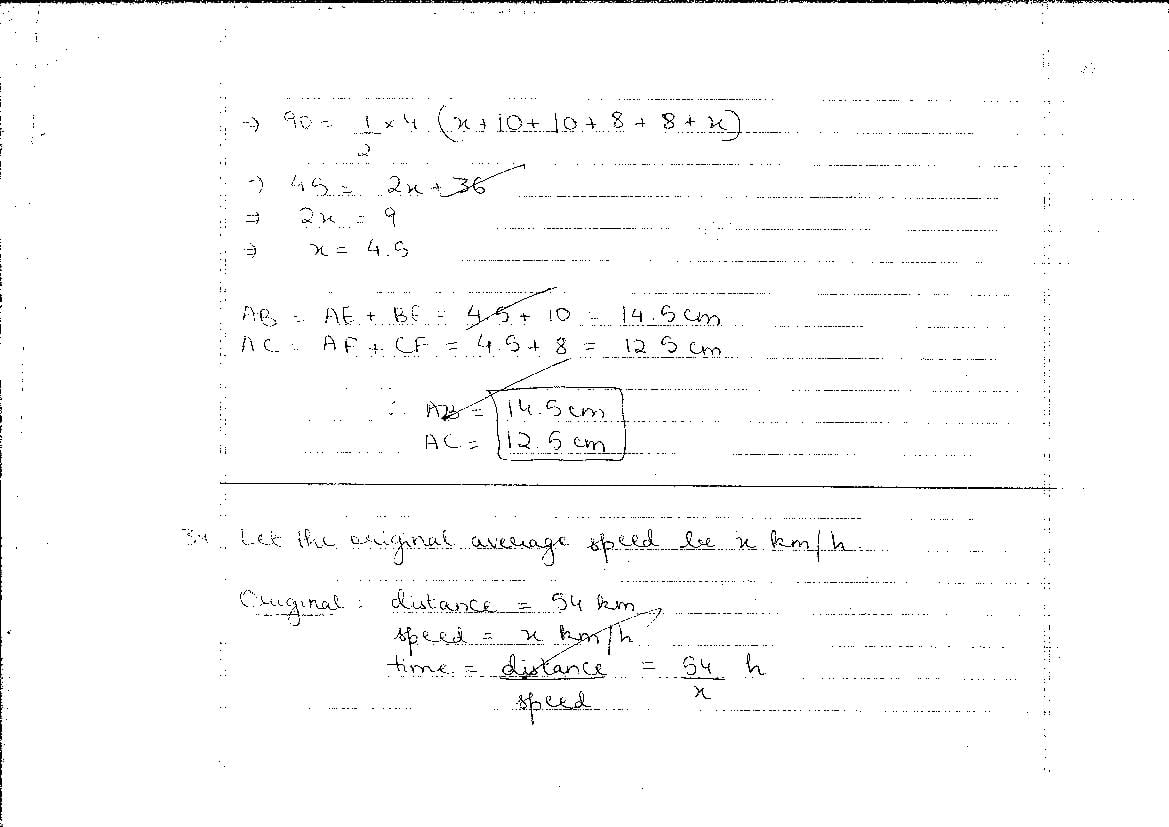 ⇒ 90 = 1/2 × 4 (x + 10 + 10 + 8 + 8 + x)
⇒ 45 = 2x + 36
⇒ 2x = 9
⇒ x = 4.5
AB = AE + BE = 4.5 + 10 = 14.5 cm
AC = AF + CF = 4.5 + 8 = 12.5 cm
∴ AB = 14.5 cm
AC = 12.5 cm
34 Let the original average speed be x km/h
Original : distance = 54 km
speed = x km/h
time = distance/speed = 54/x h